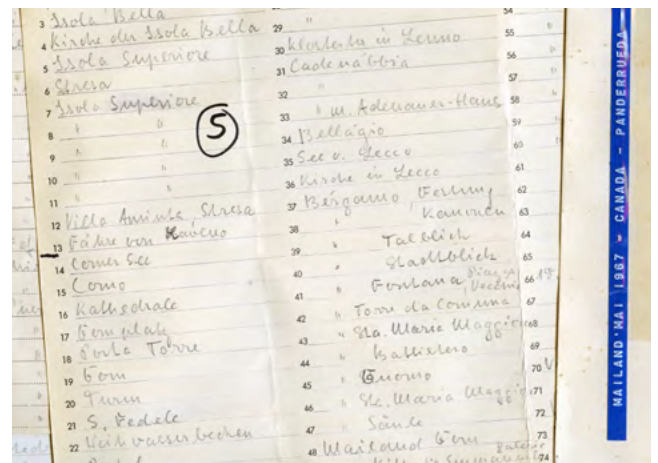 3 Isola Bella
4 Kirche der Isola Bella
5 Isola Superiore
6 Stresa
7 Isola Superiore
8 " "
9 " "
10 " "
11 " "
12 Villa Aminta, Stresa
13 Fähre von Laveno
14 Comer See
15 Como
16 Kathedrale
17 Domplatz
18 Porta Torre
19 Dom
20 Turm
21 S. Fedele
22 Weihwasserbecken
5
29 "
30 in Lenno
31 Cadenabbia
32 "
33 " m. Adenauer-Haus
34 Bellagio
35 See v. Lecco
36 Kirche in Lecco
37 Bergamo, Festung
38 " Kanonen
39 " Talblick
40 " Stadtblick
41 " Fontana, Piazza Vecchia
42 " Torre da Comuna
43 " Sta. Maria Maggiore
44 " Battistero
45 " Duomo
46 " Sta. Maria Maggiore
47 " Säule
48 Mailand Dom
54
55
56
57
58
59
60
61
62
63
64
65
66
67
68
69
70 V
71
72
73
74
MAILAND MAI 1967 - CANADA - PANDERRUEDA